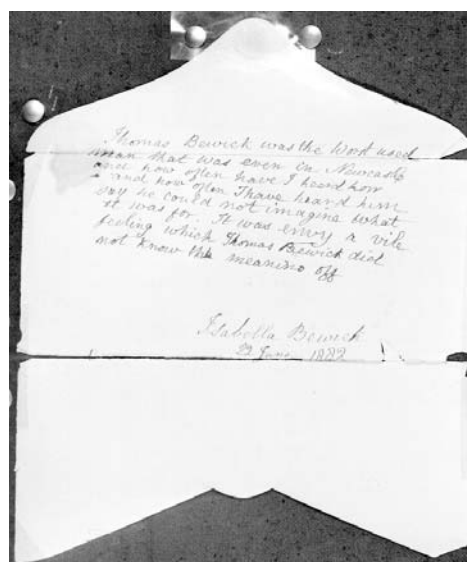 Thomas Bewick was the Worst used
man that was even in Newcastle
and how often have I heard how
and how often I have heard him
say he could not imagine what
it was for. It was envy a vile
feeling which Thomas Bewick did
not know the meaning off
Isabella Bewick
June 1882